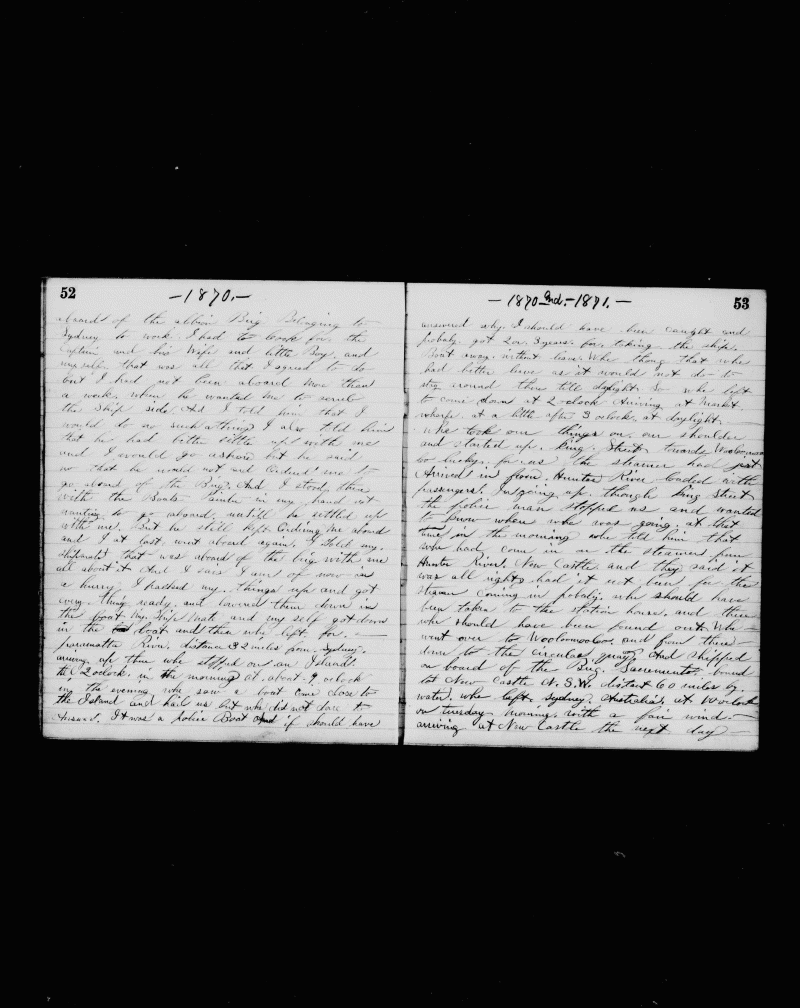 52
-1870.-
aboard of the albion Brig Belonging to
Sydney to work. I had to Cook for the
Captain and his Wife and little Boy. and
my self. that was all that I agreed to do
but I had not been aboard more than
a week. when he wanted me to scrub
the Ship side. And I told him that I
would do no such a thing I also told him
that he had better settle up with me
and I would go ashore but he said
no that he would not and Ordered me to
go aboard of the Brig. And I stood there
with the Boats Painter in my hand not
wanting to go aboard. untill he settled up
with me. But he still kept Ordering me aboard
and I at last. went aboard again. I told my.
shipmate that was aboard of the brig with me
all about it And I says I am of now in
a hurry I packed my. things up and got
every. thing ready. and lowered them down in
the boat my. Ship Mate and my self got down
in the boat and then why left. for.
paramatta River. distance 32 miles from. sydney.
arriving. up thur whe stopped on an Island.
till 2 oclock. in the morning at. about. 9 oclock
in the evening who saw a boat come close to
the Island and hail us but whe did not dare to
Answer. It was a police Boat and if should have
53
- 1870 and.- 1871. -
answered why. I should have been caught and
probaly. got 2 or. 3 years. for. taking. the ships.
Boat away. without leave. Whe thoug that whe
had better leave as it would not do to
stay around there till daylight. So whe left
to come down at 2 oclock Arriving at Market
wharfe. at a little after 3 oclock. at daylight.
whe took our things on our shoulder
and started up. King. Street towards Wooloomoo
so lucky. for. as the steamer had just
Arrived in from. Hunter River loaded with
passengers. In going up. through King Street
the police man stopped us and wanted
to know where whe was going. at that
time in the morning whe told him that
whe had come in on the steamer from
Hunter River. New Castle. and they said it
was all right. had it not been for the
steamer coming in probaly. whe should have
been taken to the station house. and then
whe should have been found out. Whe
went over to Wooloomooloo. and from there
down to the circular quay. And shipped
on board of the Brig. Sacremento. bound
to New Castle N.S.W. distant 60 miles by.
water. whe left. sydney. Australia. at 10 oclock
on tuesday morning. with a fair wind.
arriving at New Castle the next day